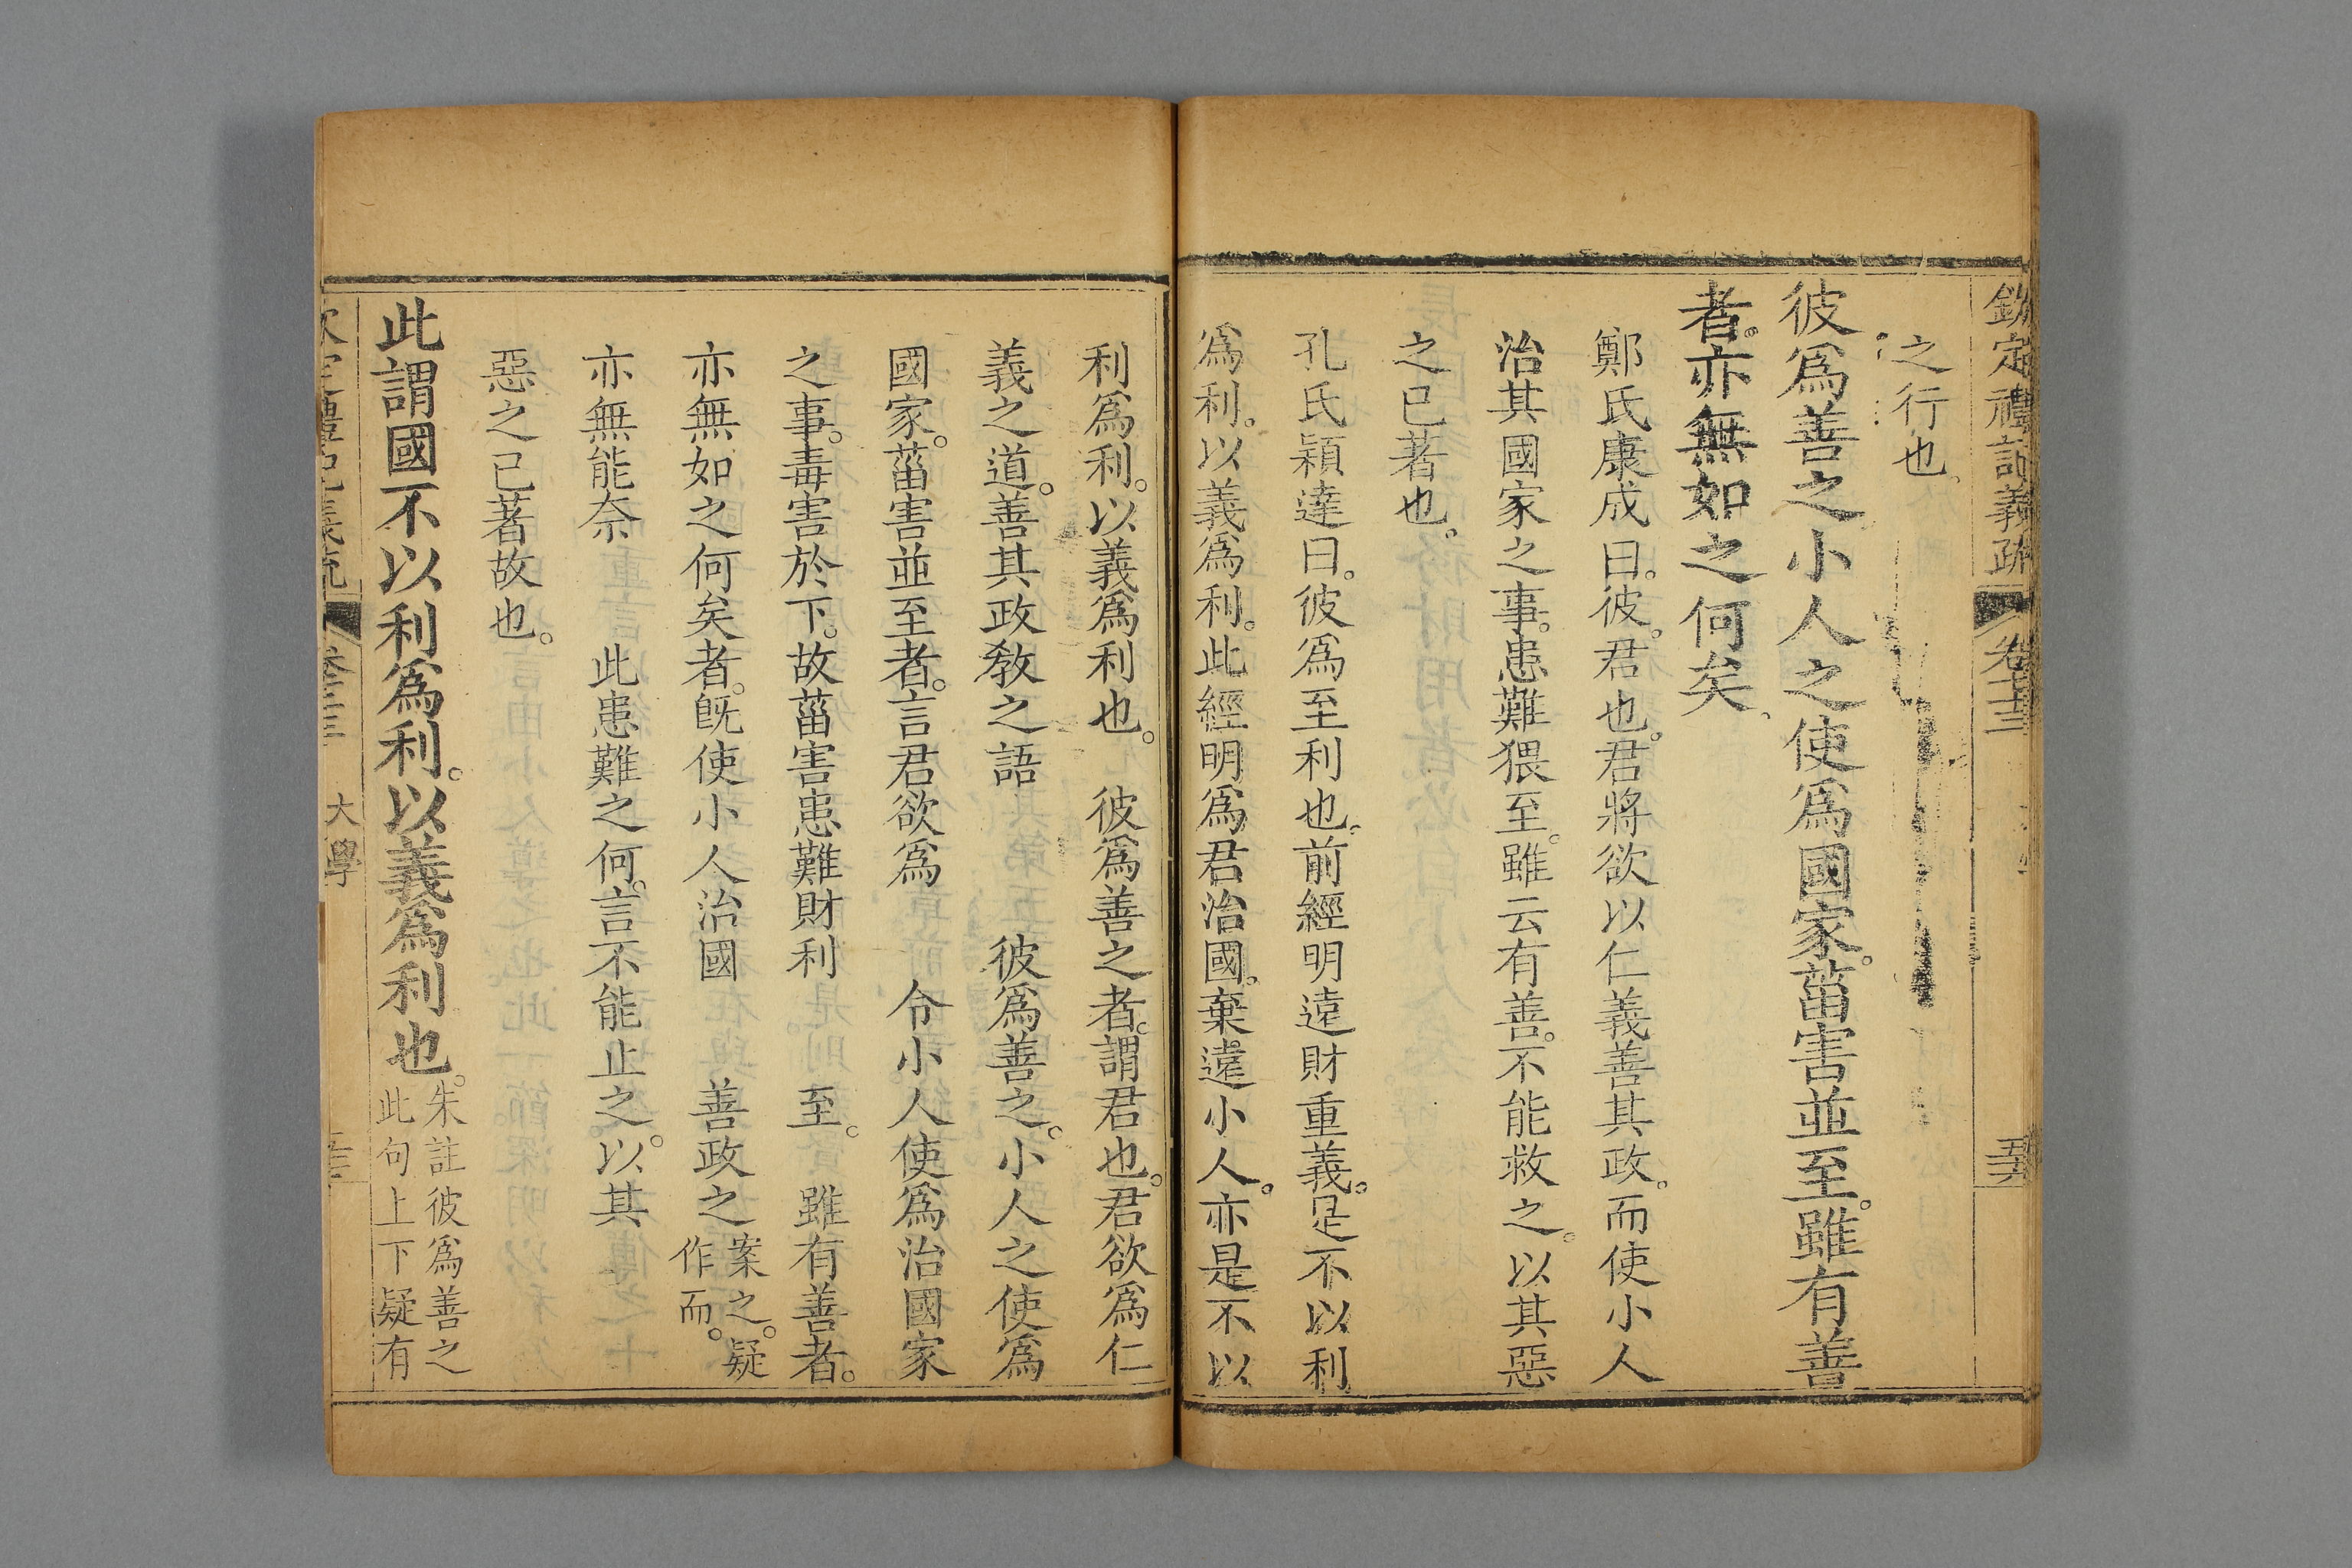 欽定禮記義疏 卷七十三
之行也
彼爲善之小人之使爲國家。菑害並至。雖有善
者。亦無如之何矣
鄭氏康成曰。彼。君也。君將欲以仁義善其政。而使小人
治其國家之事。患難猥至。雖云有善。不能救之。以其惡
之已著也。
孔氏穎達曰。彼爲至利也。前經明遠財重義。是不以利
爲利。以義爲利。此經明爲君治國。棄遠小人。亦是不以
利爲利。以義爲利也。 彼爲善之者。謂君也。君欲爲仁
義之道。善其政教之語 彼爲善之。小人之使爲
國家。菑害並至者。言君欲爲 令小人使爲治國家
之事。毒害於下。故菑害患難財利 至。 雖有善者。
亦無如之何矣者。旣使小人治國 善政之案之。疑作而。
亦無能奈 此患難之何。言不能止之。以其
惡之已著故也。
此謂國不以利爲利。以義爲利也。朱註彼爲善之
此句上下疑有
大學